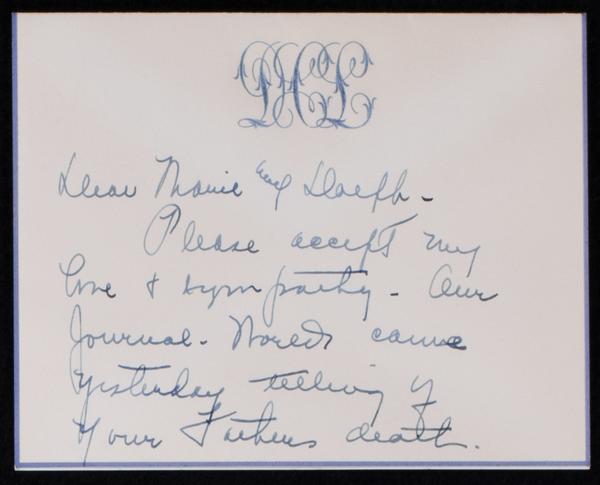 PHL
Dear Marie and Dolph -
Please accept my
love & sympathy - Our
Journal - World came
yesterday telling of
Your Fathers death.